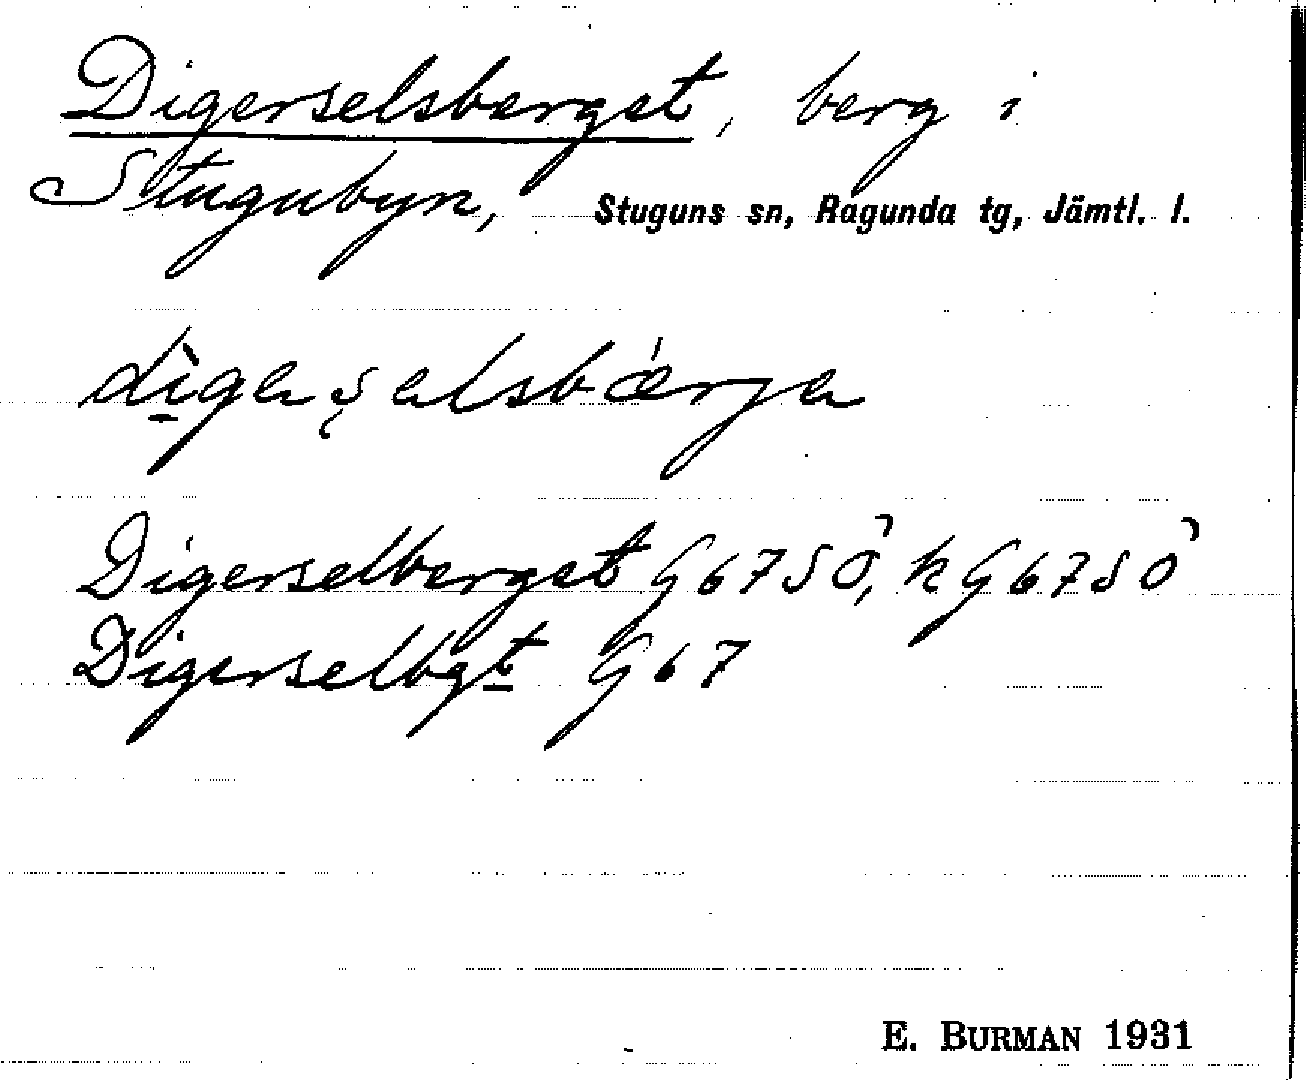 Digerselsberget, berg i
Stugubyn, Stuguns sn, Ragunda tg, Jämtl. l.
Digerselberget G67SO, kG67SO
Digerselbgt G67
E. BURMAN 1931